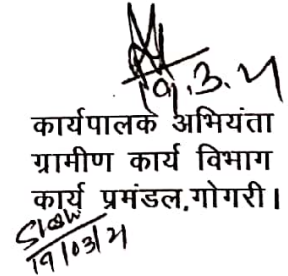 19.3.21
कार्यपालक अभियंता
ग्रामीण कार्य विभाग
कार्य प्रमंडल,गोगरी।
19/03/21